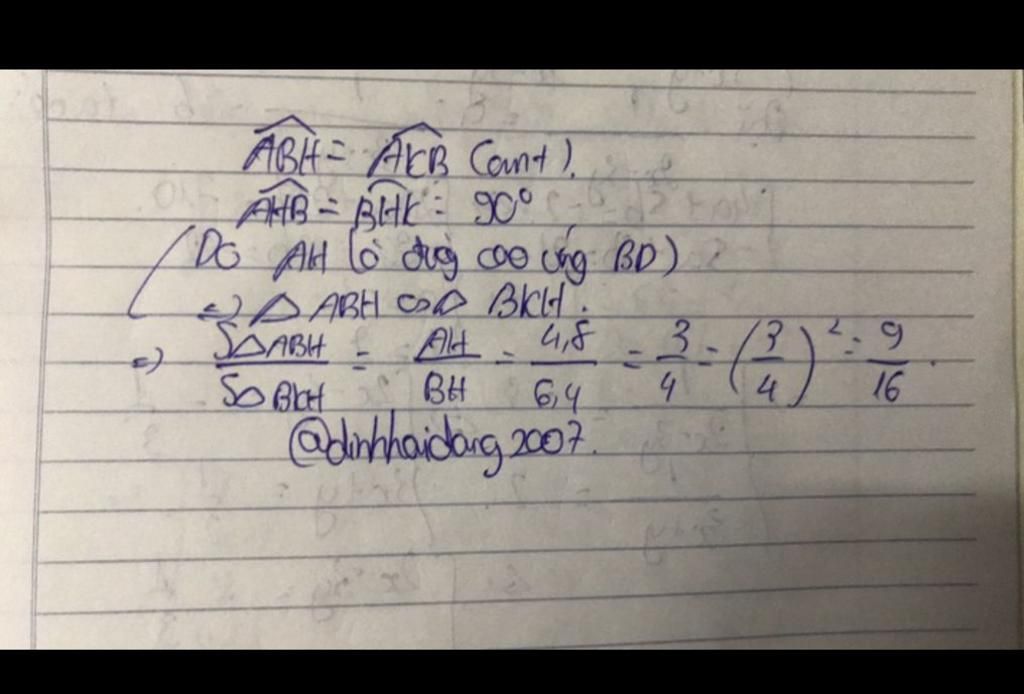 ABH = AKB (cmt).
AHB = BHK = 90°
(Do AH là đường cao ứng BD)
=> △ ABH ∽ △ BKH.
=> S△ABH/S△BKH = AH/BH = 4,8/6,4 = 3/4 = (3/4)² = 9/16.
@dinhhaidang2007.